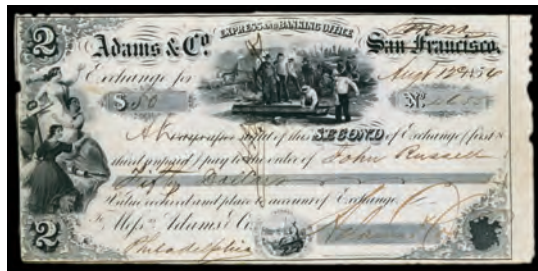 2
Adams & Co
EXPRESS AND BANKING OFFICE
San Francisco,
Exchange for
Augt 12th 1854
$ 50
No
At sight of this SECOND of Exchange (first &
third unpaid) pay to the order of John Russell
Fifty Dollars
Value received and place to account of Exchange.
To Messrs Adams & Co.
Philadelphia
2